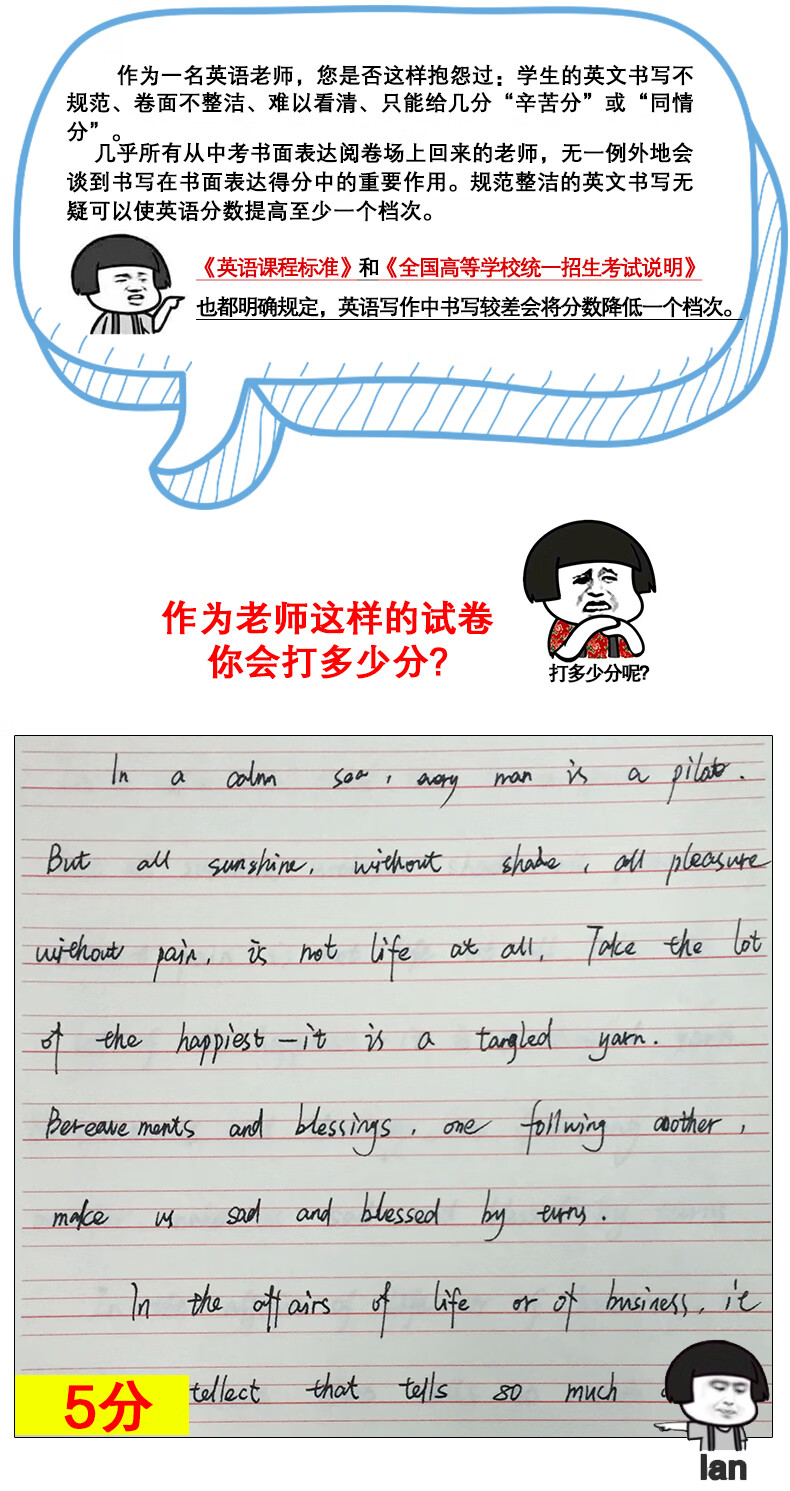 作为一名英语老师，您是否这样抱怨过：学生的英文书写不
规范、卷面不整洁、难以看清、只能给几分“辛苦分”或“同情
分”。
几乎所有从中考书面表达阅卷场上回来的老师，无一例外地会
谈到书写在书面表达得分中的重要作用。规范整洁的英文书写无
疑可以使英语分数提高至少一个档次。
《英语课程标准》和《全国高等学校统一招生考试说明》
也都明确规定，英语写作中书写较差会将分数降低一个档次。
作为老师这样的试卷
你会打多少分?
打多少分呢?
In a calm sea, every man is a pilot.
But all sunshine, without shade, all pleasure
without pain, is not life at all, Take the lot
of the happiest—it is a tangled yarn.
Bereavements and blessings, one follwing another,
make us sad and blessed by turns.
In the affairs of life or of business, it
tellect that tells so much
5分
lan